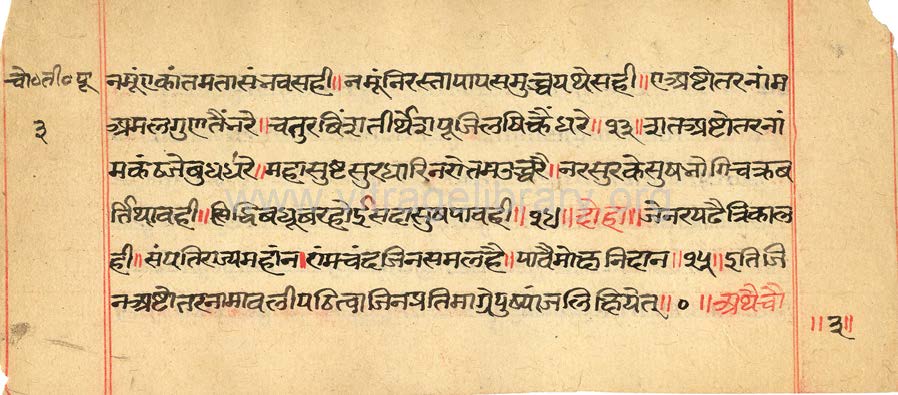 चो०ती०पू
३
नमूं एकांतमतासंनवसही॥ नमूं निरस्तापापसमुच्चयथेसही॥ ए अष्टोतरनांम
अमलगुणतैंनरै॥ चतुरविंशतीर्थेशपूजि धरे॥ १३॥ शतअष्टोतरनां
मकंठजेबुधधरै॥ महासुष्टसुरधारिनरोतमउच्चरै॥ नरसुरकेसुषनोगिचक्रव
र्तिथावही॥ सिद्धिबधूबरहोईसदासुषपावही॥ १४॥ दोहा॥ जेनरपढैत्रिकाल
ही॥ संपतिराज्यमहांन॥ रांमचंदजिनसमलहै॥ पावैमोछनिदान॥ १५॥ इतिजि
नअष्टोतरनामावलीपठित्वाजिनप्रतिमाग्रेपुष्पांजलिंक्षिपेत्॥ ० ॥ अथचौ
॥३॥
www.vitragelibrary.org